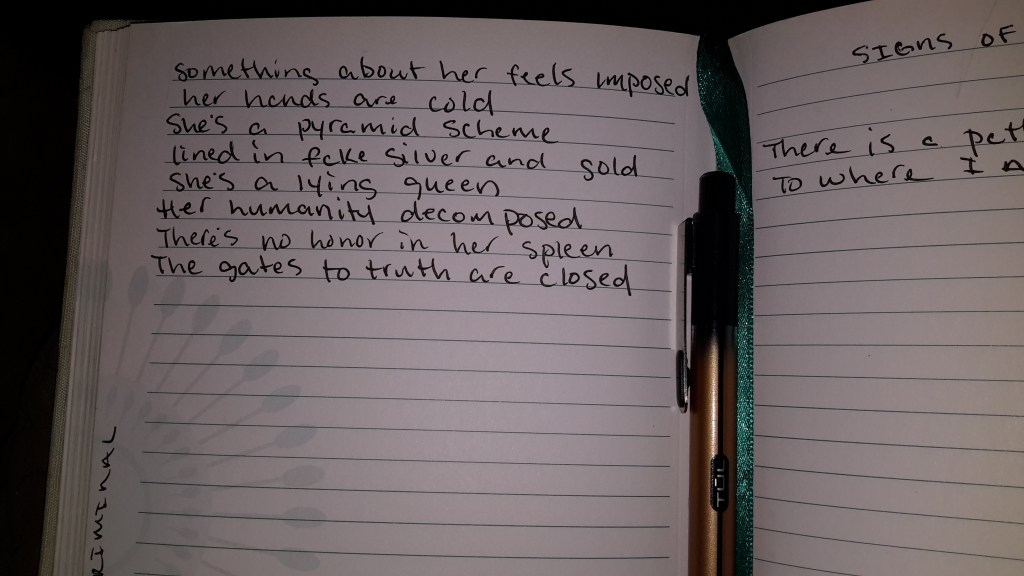 something about her feels imposed
her hands are cold
She's a pyramid scheme
lined in fake silver and gold
She's a lying queen
Her humanity decomposed
There's no honor in her spleen
The gates to truth are closed
SIGNS OF
There is a
To where I